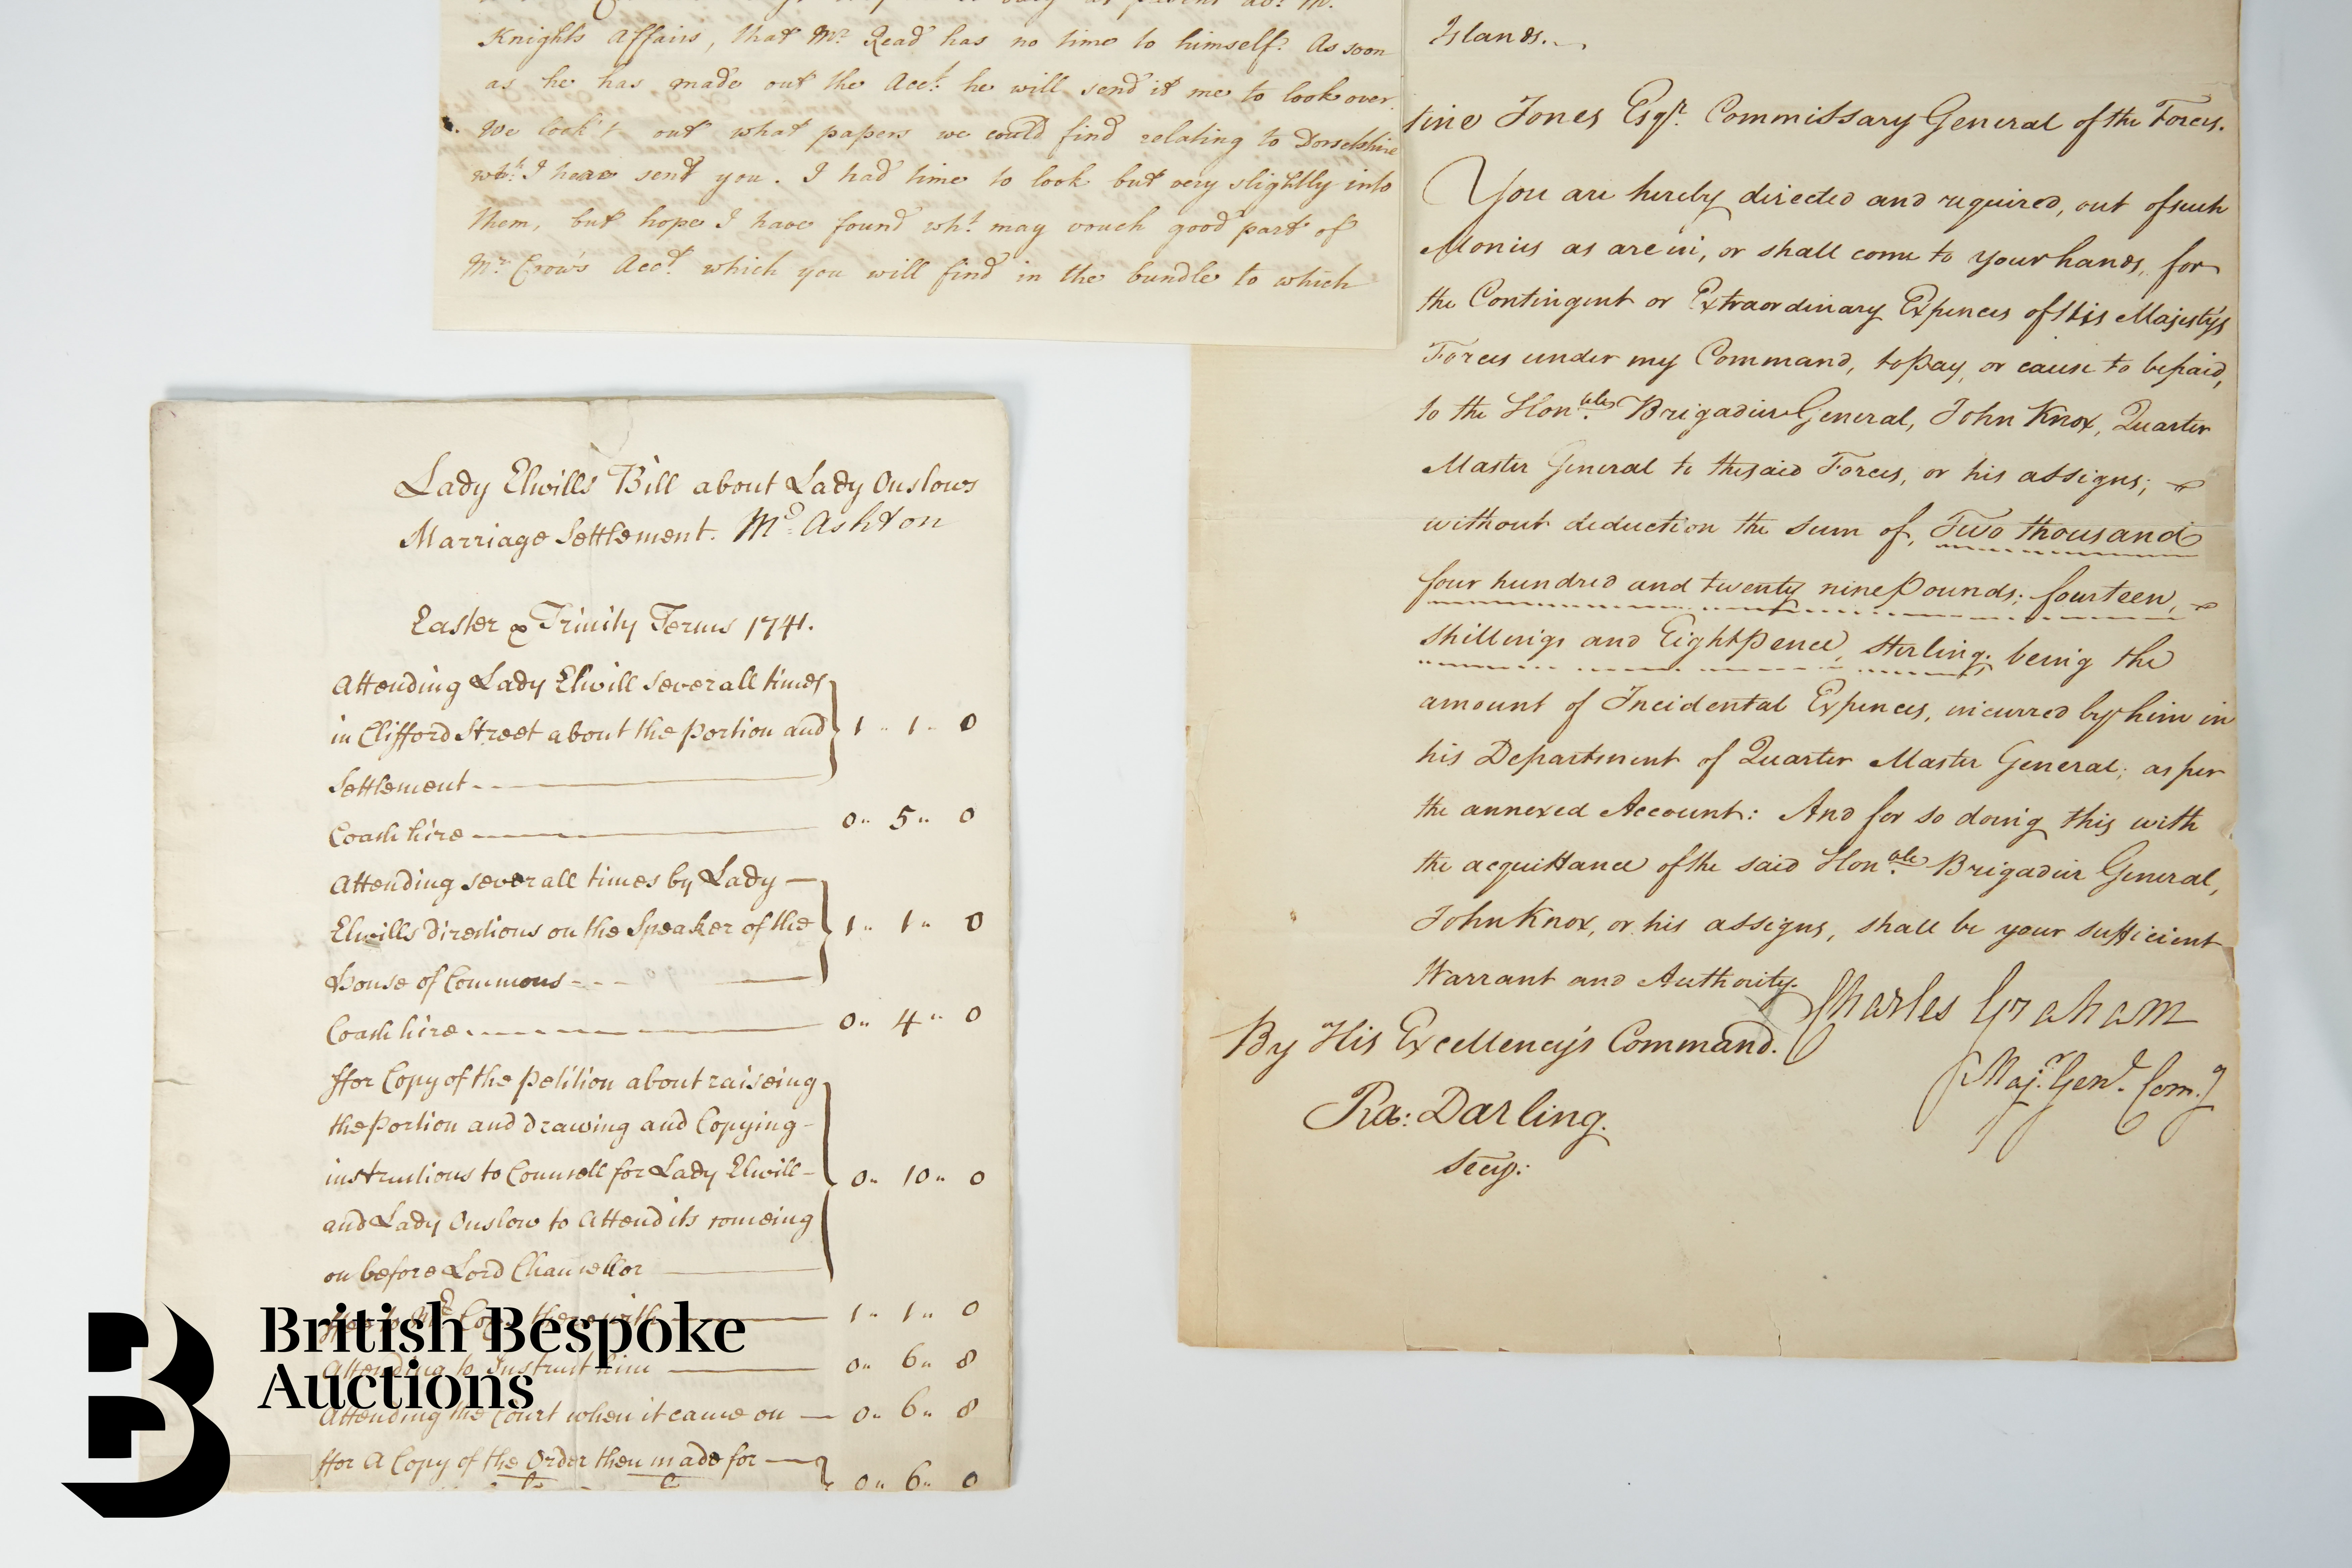 Knights Affairs, that Mr. Read has no time to himself. As soon
as he has made out the Acct. he will send it me to look over.
We look't out what papers we could find relating to Dorsetshire
wch. I have sent you. I had time to look but very slightly into
them, but hope I have found wht. may vouch good part of
Mr. Crow's Acct. which you will find in the bundle to which
Islands.
tine Jones Esqr. Commissary General of the Forces.
You are hereby directed and required, out of such
Monies as are in, or shall come to your hands, for
the Contingent or Extraordinary Expences of His Majesty's
Forces under my Command, to pay, or cause to be paid,
to the Honble. Brigadier General, John Knox, Quarter
Master General to the said Forces, or his assigns;
without deduction the sum of, Two thousand
four hundred and twenty nine Pounds; fourteen,
shillings and Eight Pence, sterling; being the
amount of Incidental Expences, incurred by him in
his Department of Quarter Master General; as per
the annexed Account: And for so doing this with
the acquittance of the said Honble. Brigadier General,
John Knox, or his assigns, shall be your sufficient
Warrant and Authority.
Charles Graham
Majr. Genl. Com.g
By His Excellency's Command.
Ra: Darling.
Secy:
Lady Elwills Bill about Lady Onslows
Marriage Settlement. Mr. Ashton
Easter & Trinity Terms 1741.
Attending Lady Elwill severall times
in Clifford Street about the portion and 1 .. 1 .. 0
Settlement
Coach hire 0 .. 5 .. 0
Attending severall times by Lady
Elwills directions on the Speaker of the 1 .. 1 .. 0
House of Commons
Coach hire 0 .. 4 .. 0
ffor Copy of the petition about raiseing
the portion and drawing and Copying
instructions to Councell for Lady Elwill 0 .. 10 .. 0
and Lady Onslow to Attend its comeing
on before Lord Chancellor
ffee to Mr. therewith 1 .. 1 .. 0
Attending to Instruct him 0 .. 6 .. 8
Attending the Court when it came on 0 .. 6 .. 8
ffor A Copy of the Order then made for
0 .. 6 .. 0
B
British Bespoke
Auctions